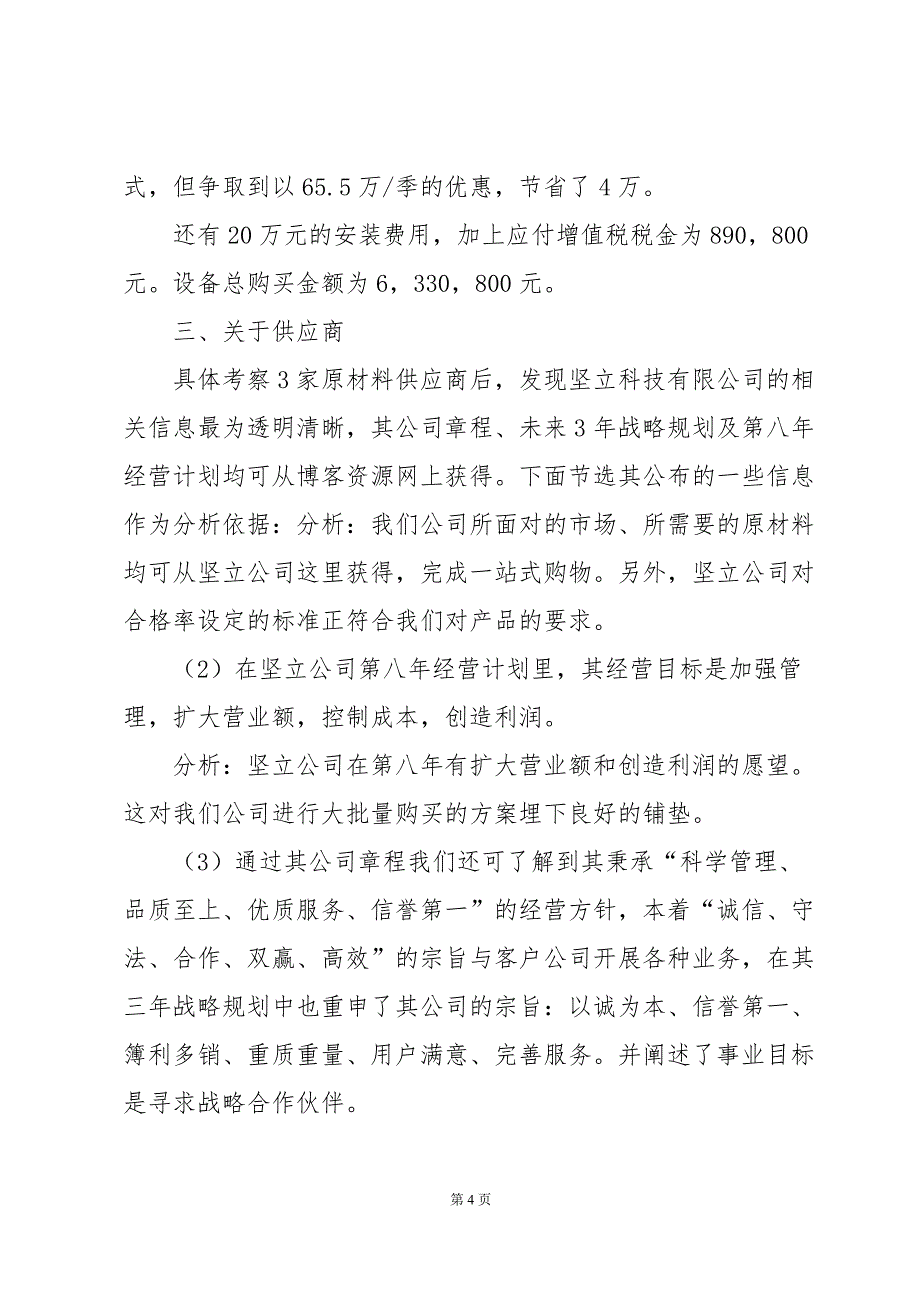 式，但争取到以 65.5 万/季的优惠，节省了 4 万。
还有 20 万元的安装费用，加上应付增值税税金为 890，800
元。设备总购买金额为 6，330，800 元。
三、关于供应商
具体考察 3 家原材料供应商后，发现坚立科技有限公司的相
关信息最为透明清晰，其公司章程、未来 3 年战略规划及第八年
经营计划均可从博客资源网上获得。下面节选其公布的一些信息
作为分析依据：分析：我们公司所面对的市场、所需要的原材料
均可从坚立公司这里获得，完成一站式购物。另外，坚立公司对
合格率设定的标准正符合我们对产品的要求。
（2）在坚立公司第八年经营计划里，其经营目标是加强管
理，扩大营业额，控制成本，创造利润。
分析：坚立公司在第八年有扩大营业额和创造利润的愿望。
这对我们公司进行大批量购买的方案埋下良好的铺垫。
（3）通过其公司章程我们还可了解到其秉承“科学管理、
品质至上、优质服务、信誉第一”的经营方针，本着“诚信、守
法、合作、双赢、高效”的宗旨与客户公司开展各种业务，在其
三年战略规划中也重申了其公司的宗旨：以诚为本、信誉第一、
簿利多销、重质重量、用户满意、完善服务。并阐述了事业目标
是寻求战略合作伙伴。
第 4 页